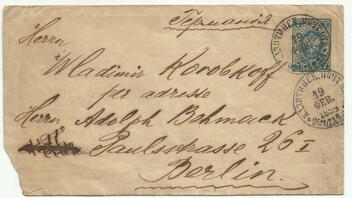 Германія
Herrn
Wladimir Korobkoff
per adresse
Herrn Adolph Behmack
Paulsstrasse 26 I
Berlin.
19
ФЕВ.